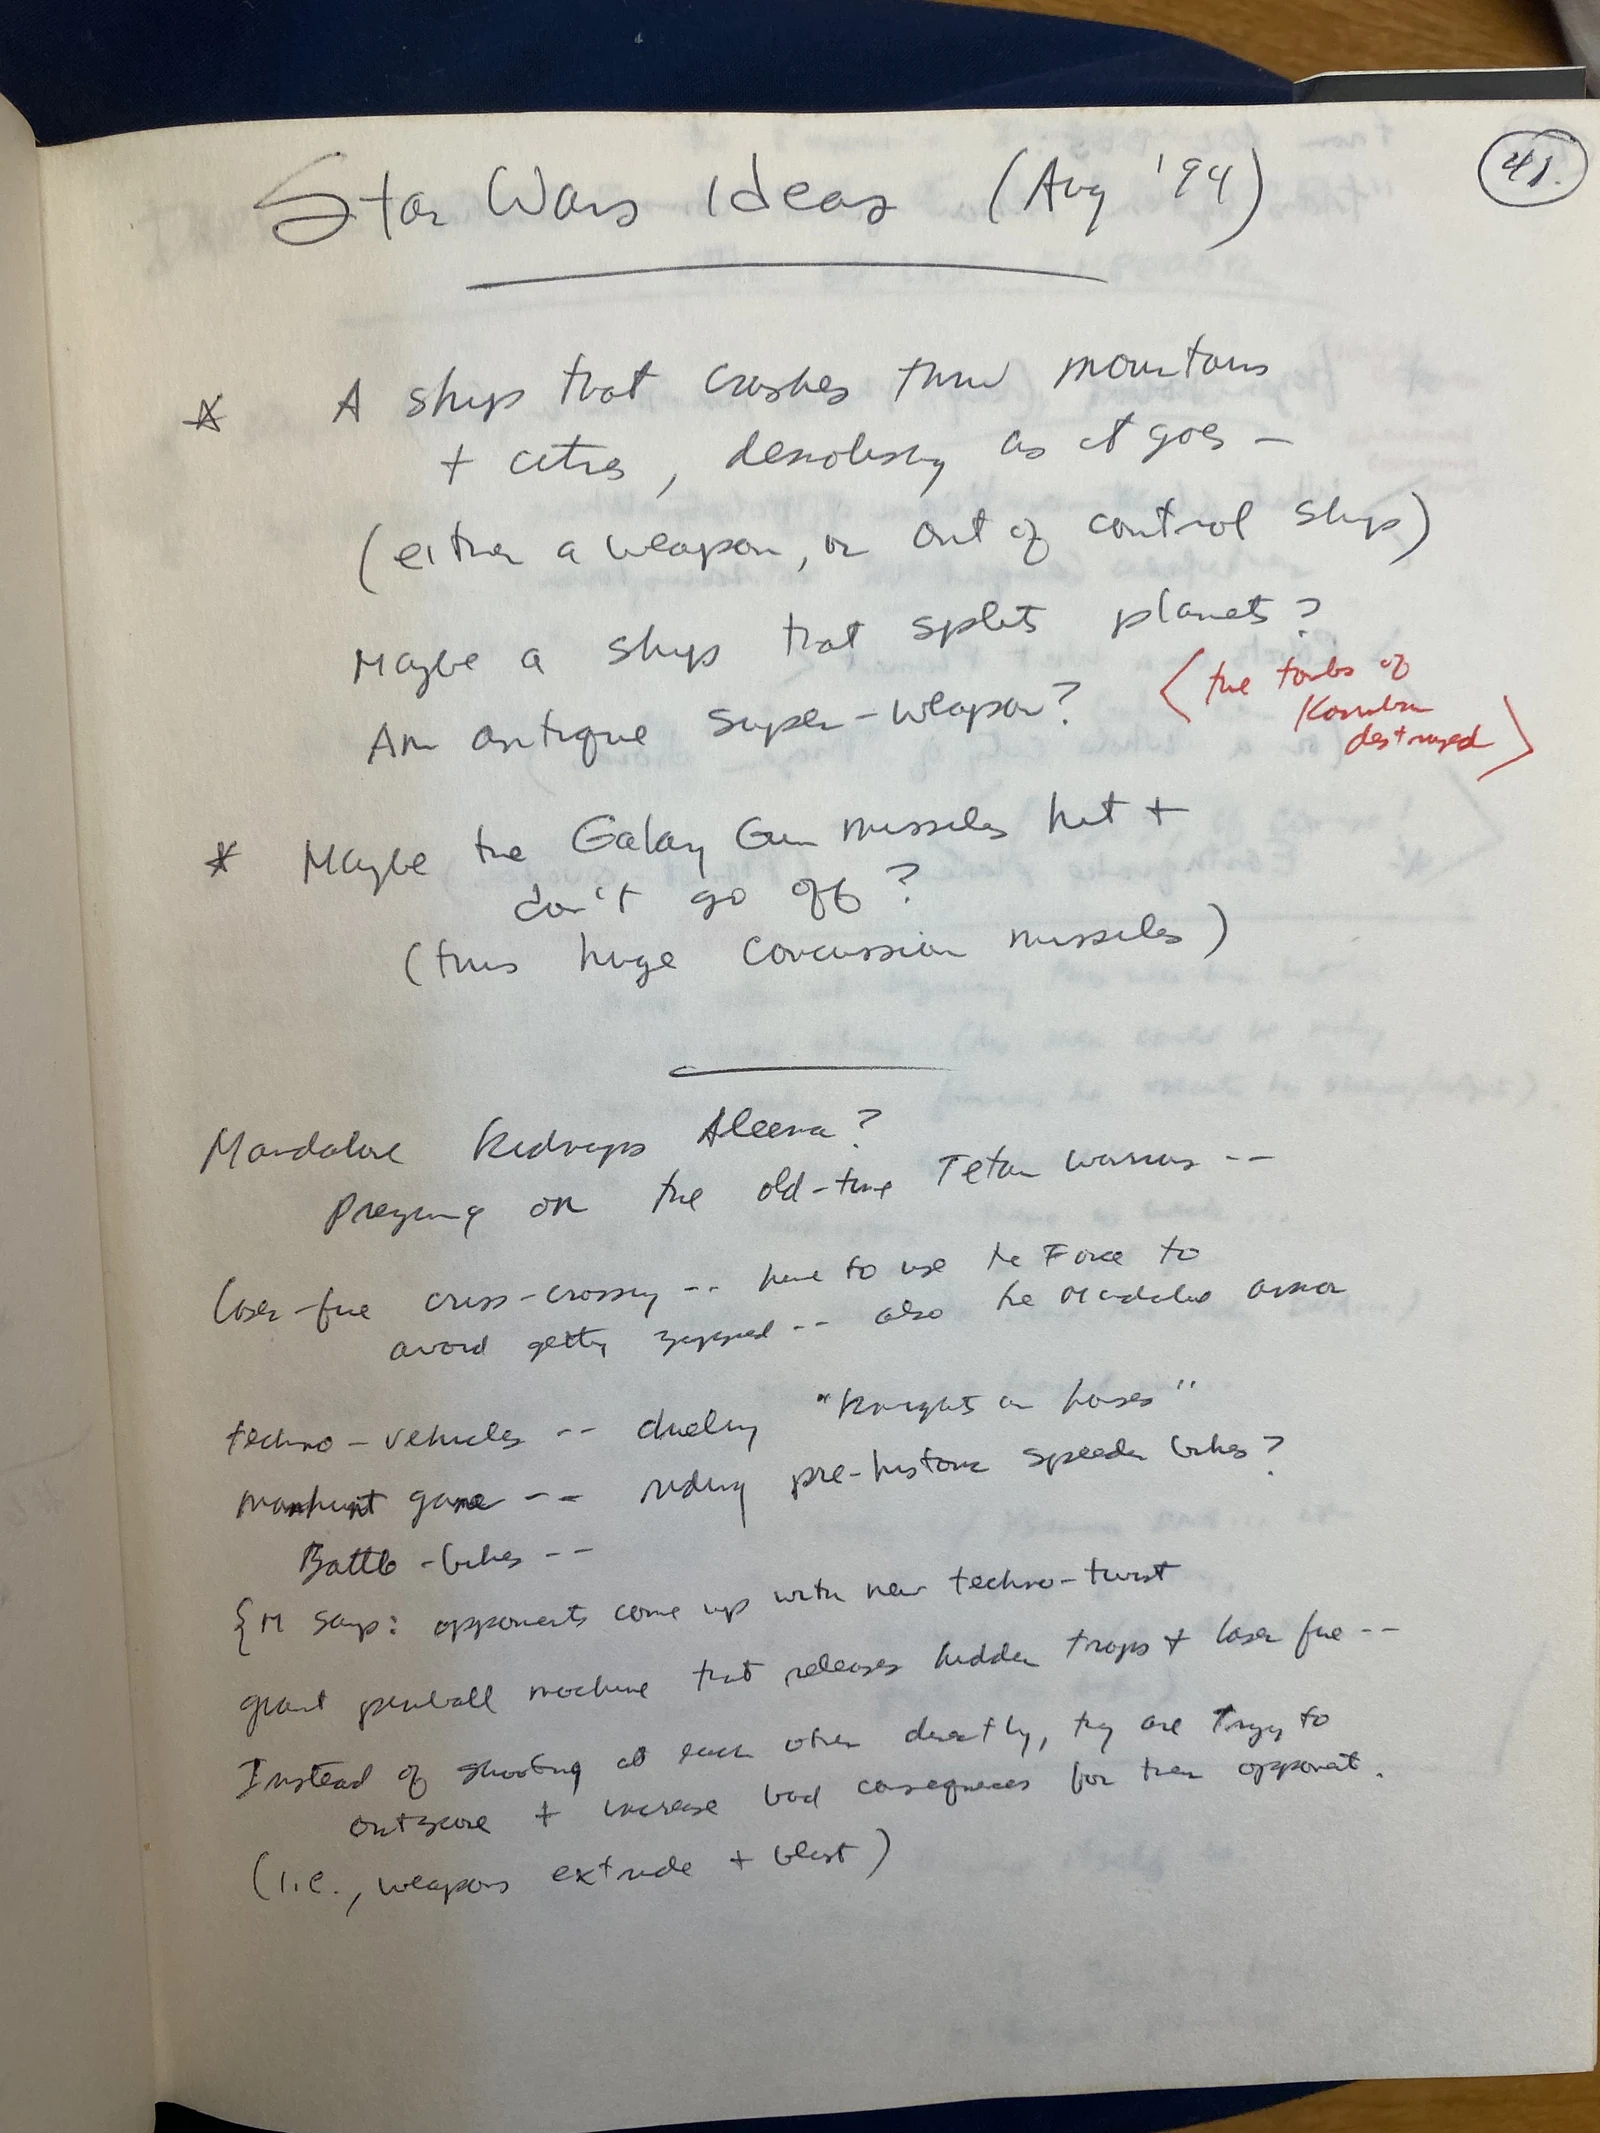 Star Wars Ideas (Aug '94)
41.
* A ship that crashes thru mountains
+ cities, demolishing as it goes —
(either a weapon, or out of control ship)
Maybe a ship that splits planets?
An antique super-weapon?
<the tombs of
Korriban
destroyed>
* Maybe the Galaxy Gun missiles hit +
don't go off?
(thus huge concussion missiles)
Mandalore kidnaps Aleema?
Preying on the old-time Tetan warriors --
Laser-fire criss-crossing -- have to use the Force to
avoid getting zapped -- also the Mandalore armor
techno-vehicles -- dueling "knights on horses"
manhunt game -- riding pre-historic speeder bikes?
Battle-bikes --
{M says: opponents come up with new techno-twist
giant pinball machine that releases hidden traps + laser fire --
Instead of shooting at each other directly, they are trying to
outscore + increase bad consequences for their opponent.
(i.e., weapons extrude + blast)